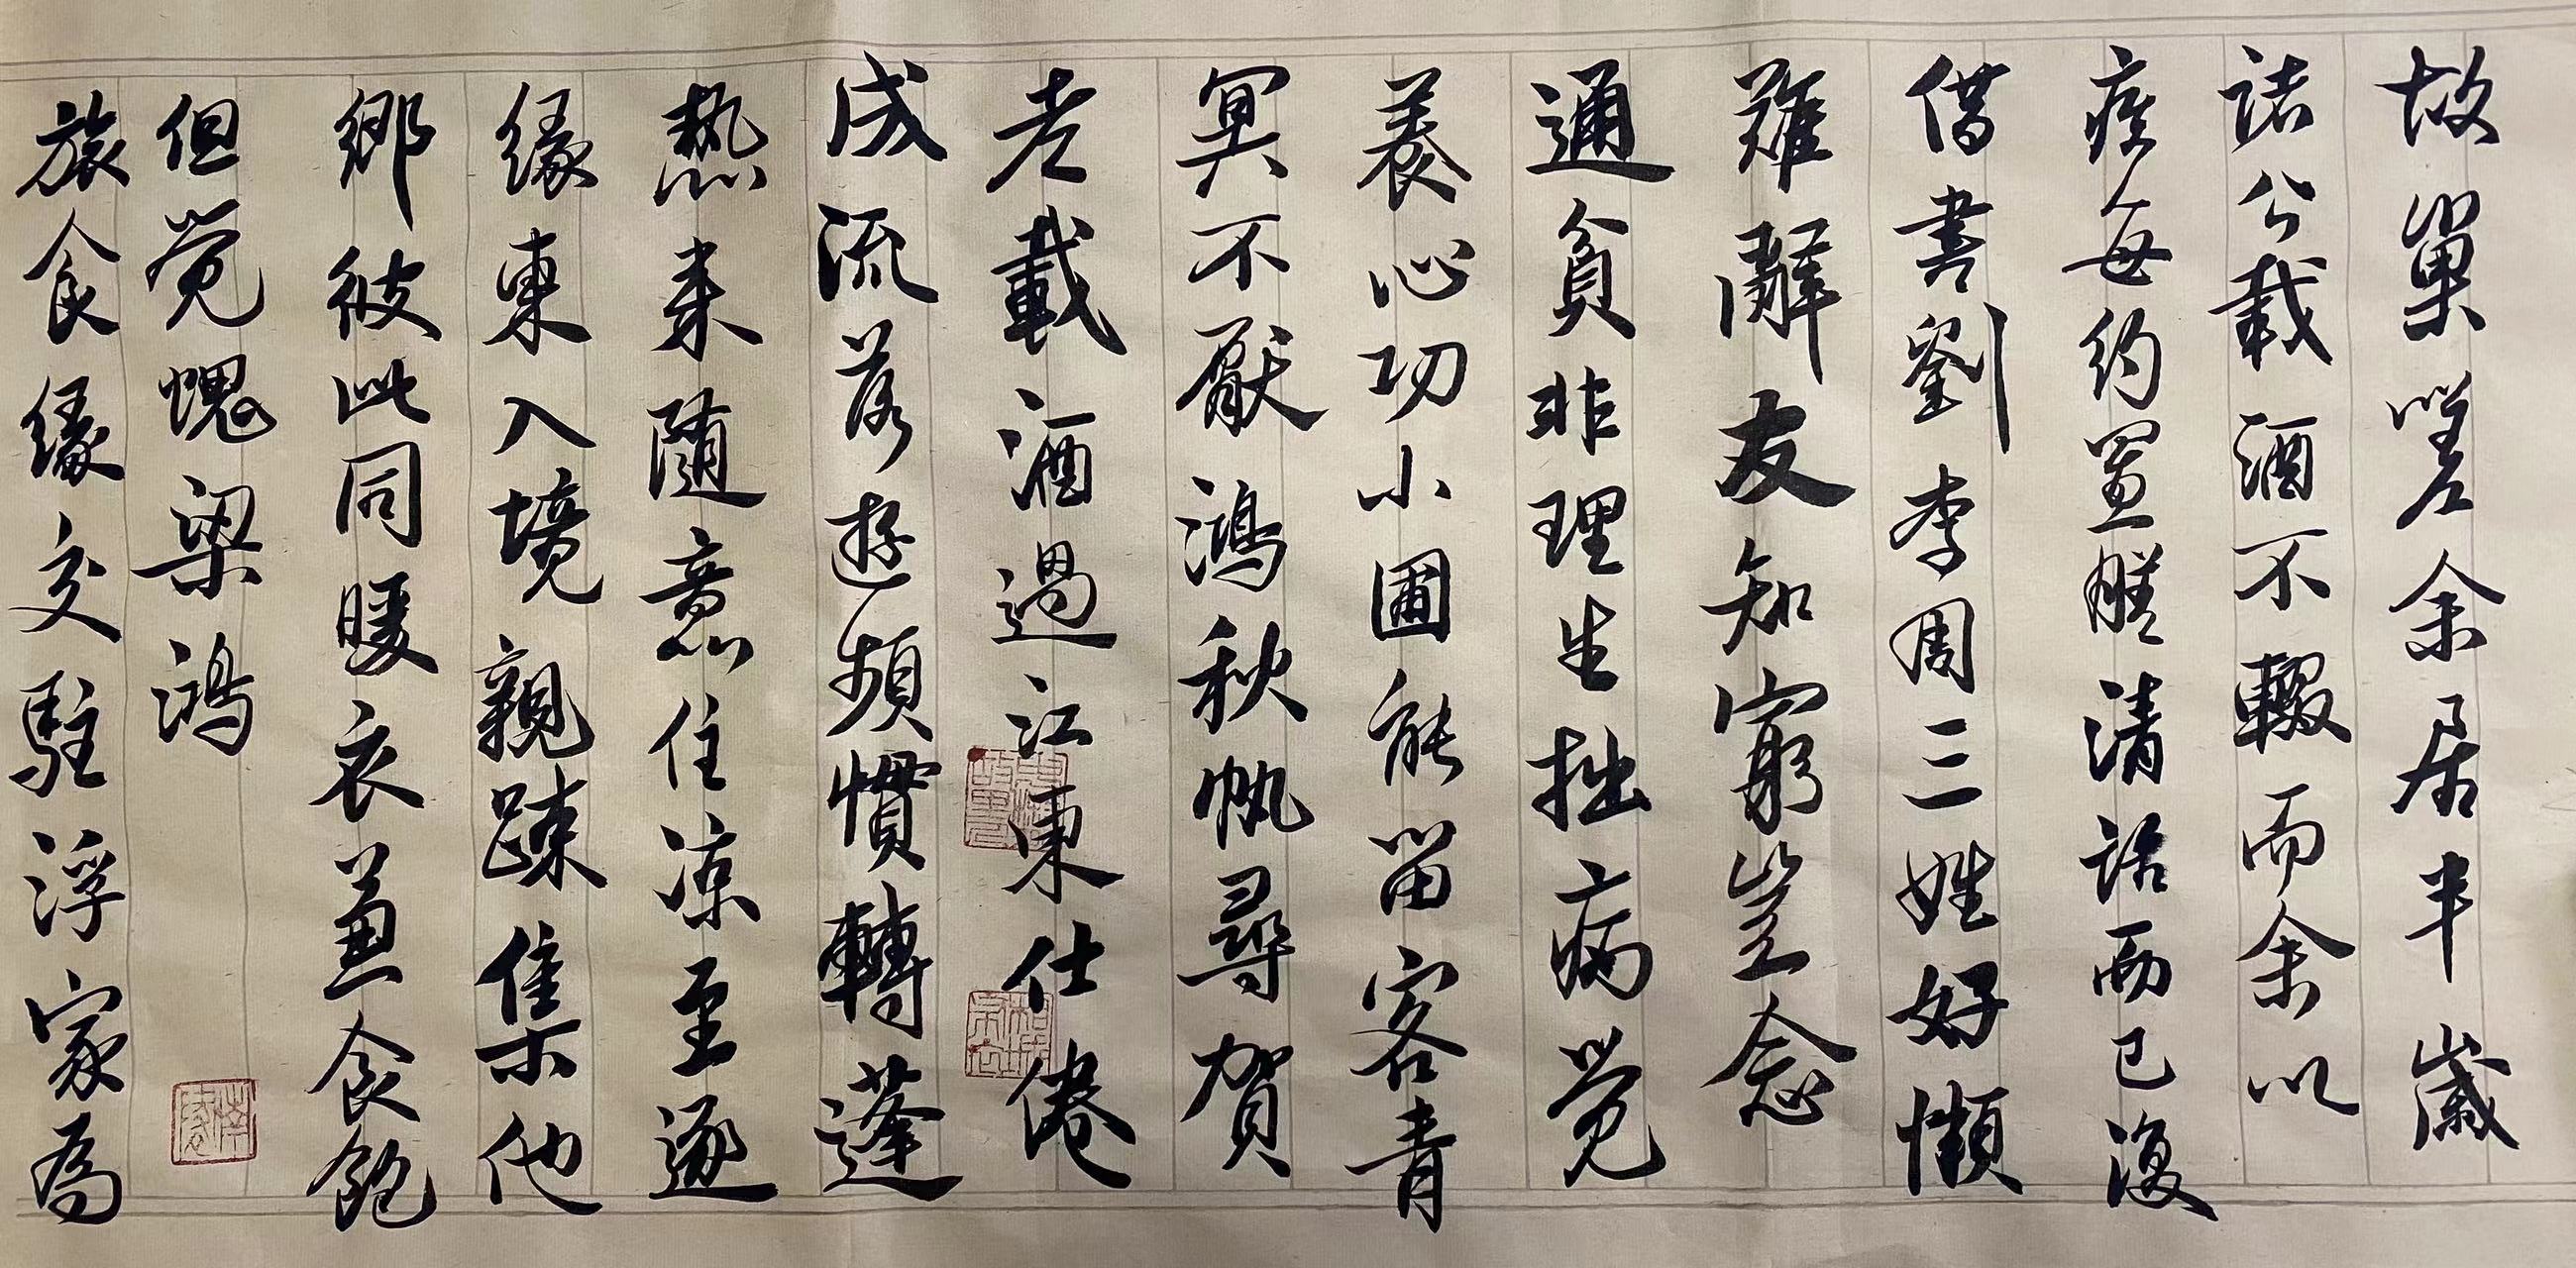 故巢嗟余居半歲
諸公載酒不輟而余以
疾每約置膳清話而已復
借書劉李周三姓好懶
難辭友知窮豈念
通貧非理生拙病覺
養心功小圃能留客青
冥不厭鴻秋帆尋賀
老載酒過江東仕倦
成流落遊頻慣轉蓬
熱來隨意住涼至逐
緣東入境親疎集他
鄉彼此同暖衣兼食飽
但覺愧梁鴻
旅食緣交駐浮家為